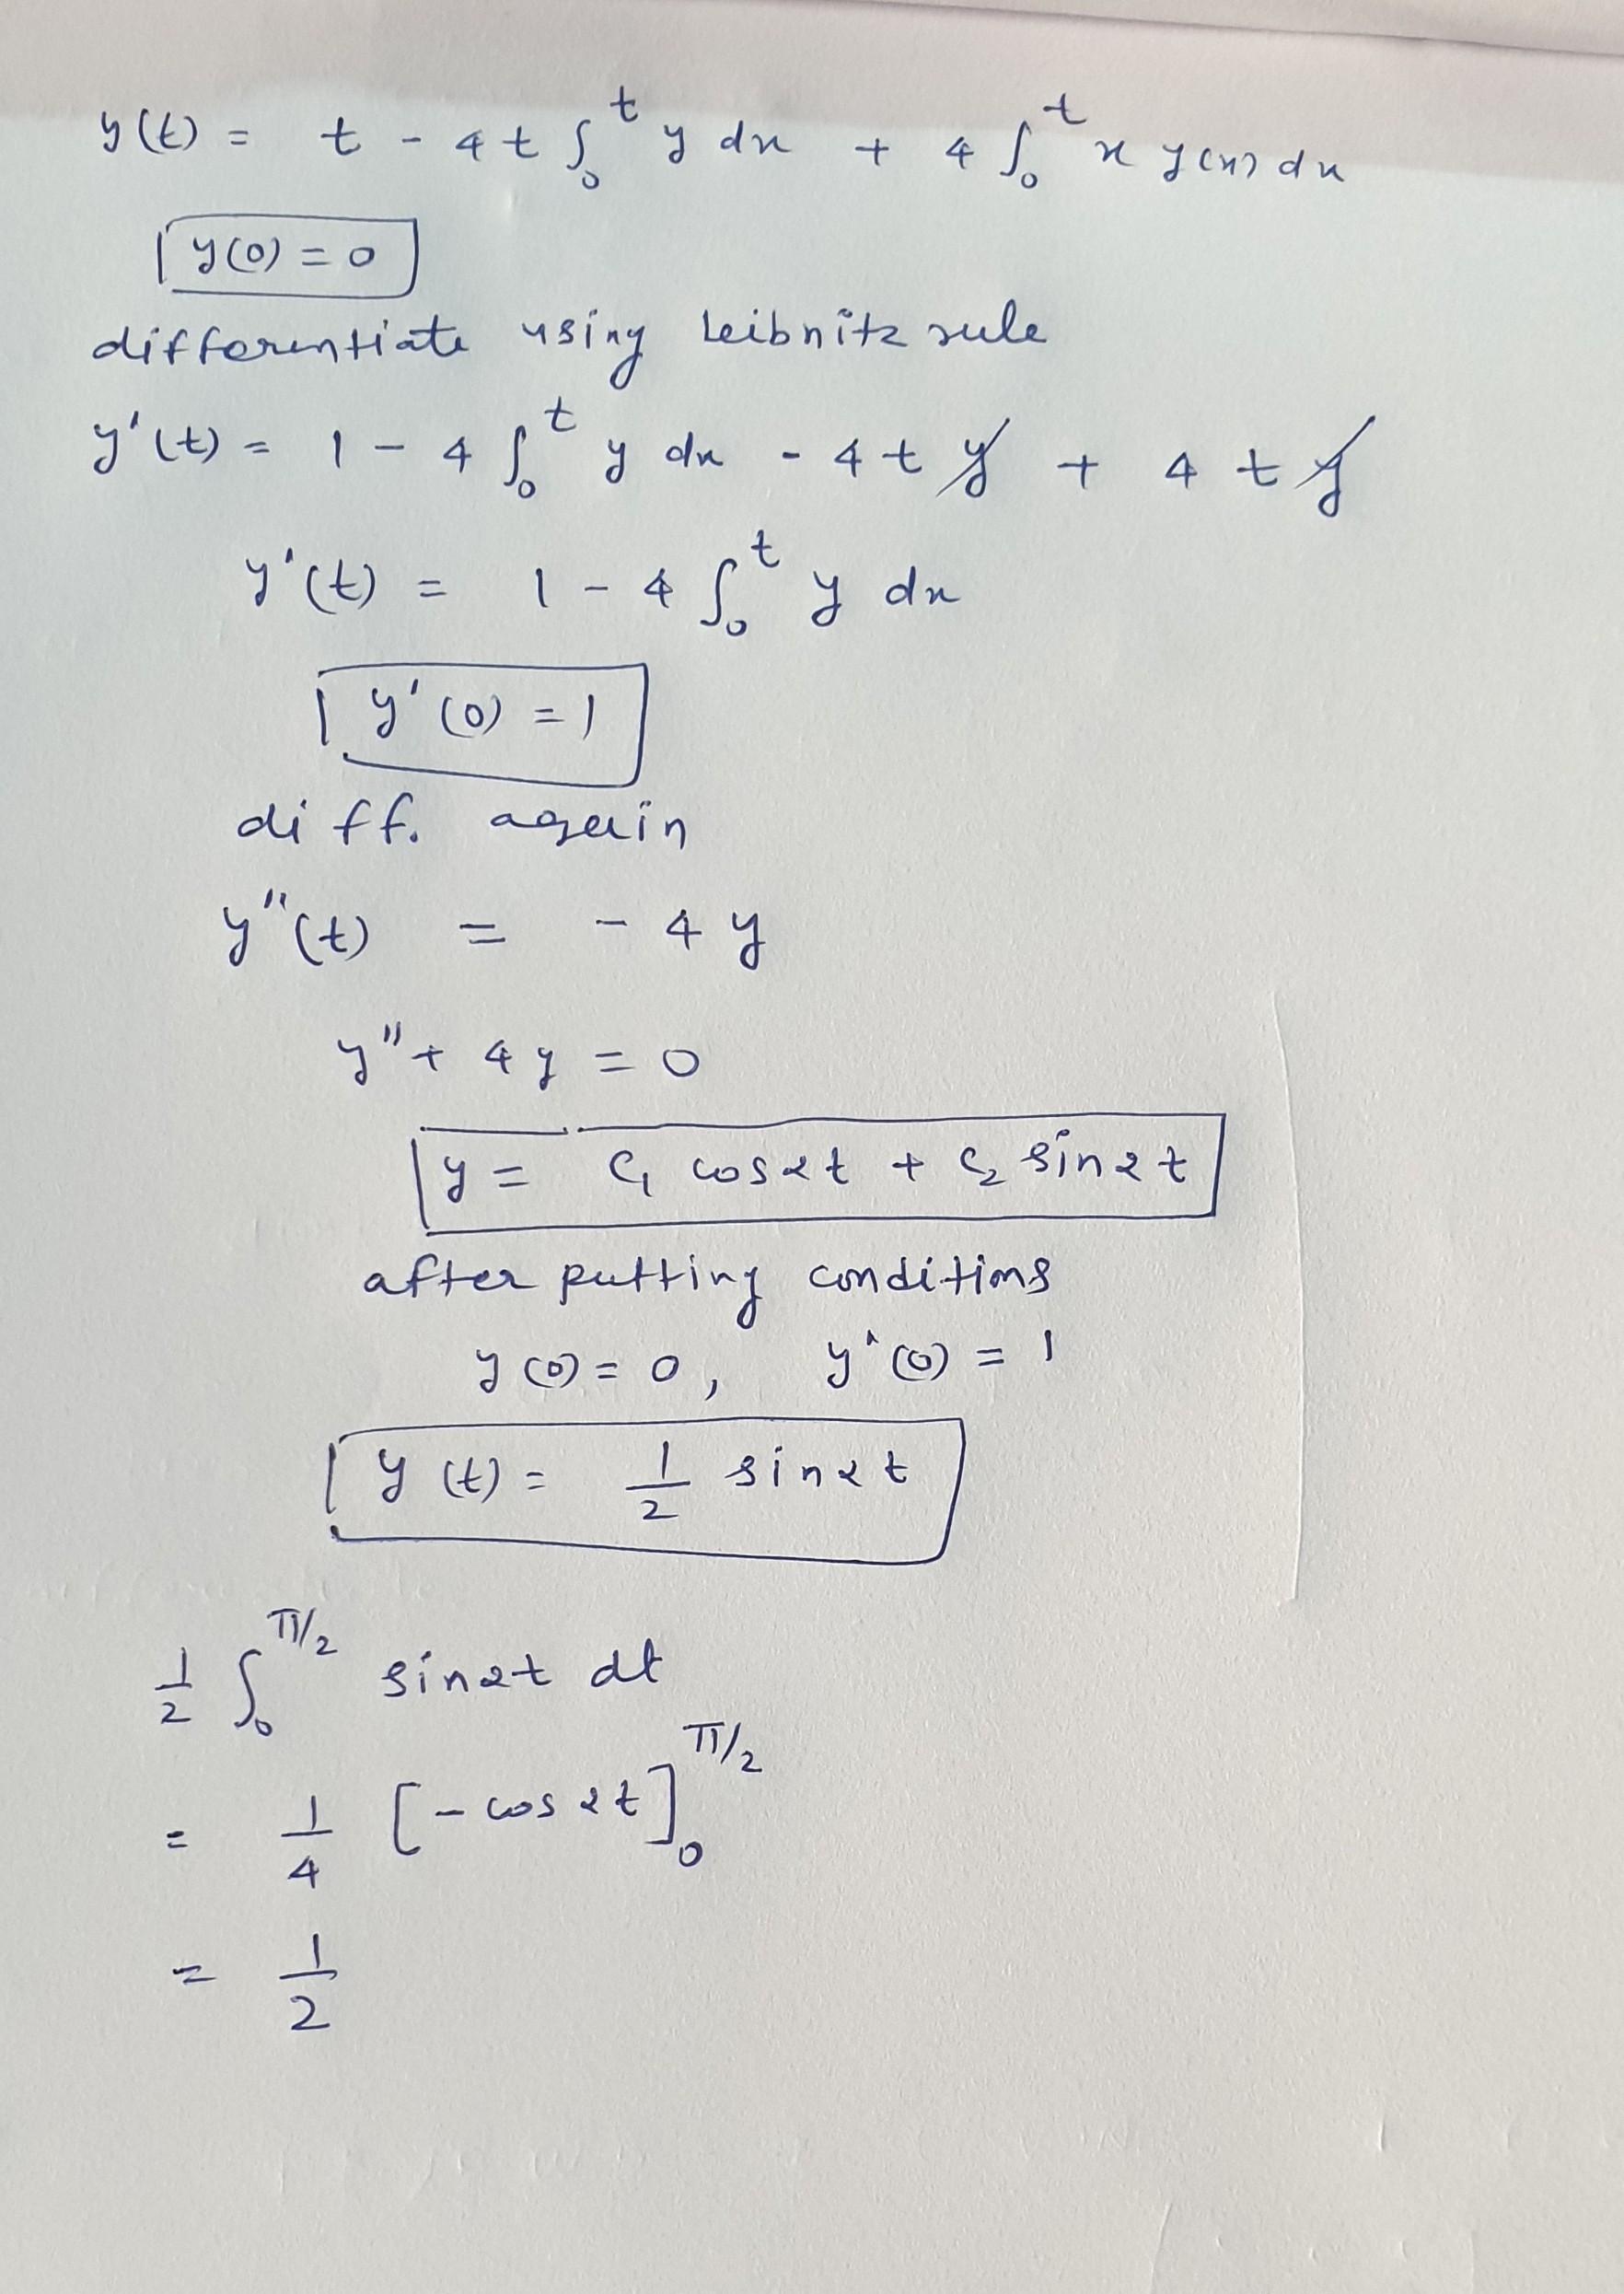 y(t) = t - 4t ∫₀ᵗ y dx + 4 ∫₀ᵗ x y(x) dx
y(0) = 0
differentiate using Leibnitz rule
y'(t) = 1 - 4 ∫₀ᵗ y dx - 4 t y + 4 t y
y'(t) = 1 - 4 ∫₀ᵗ y dx
y'(0) = 1
diff. again
y''(t) = - 4 y
y'' + 4 y = 0
y = C₁ cos2t + C₂ sin2t
after putting conditions
y(0) = 0, y'(0) = 1
y(t) = 1/2 sin2t
1/2 ∫₀^(π/2) sin2t dt
= 1/4 [- cos2t]₀^(π/2)
= 1/2